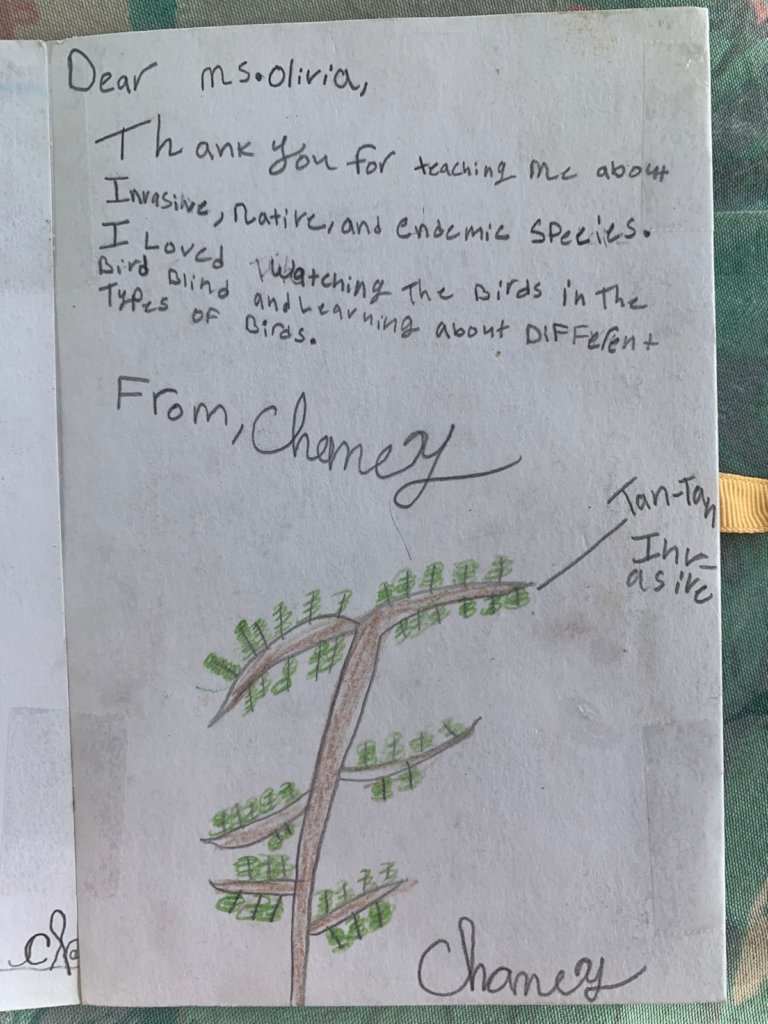 Dear Ms. Olivia,
Thank you for teaching me about
Invasive, Native, and endemic species.
I Loved Watching The Birds in The
Bird Blind and Learning about Different
Types of Birds.
From, Chaney
Tan-Tan
Inv-
asive
Chaney